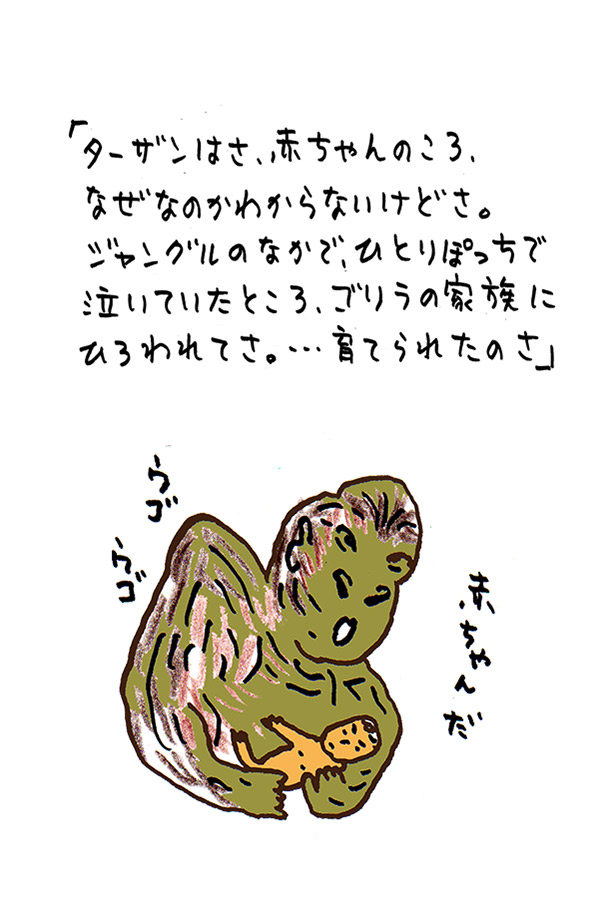 「ターザンはさ、赤ちゃんのころ、
なぜなのかわからないけどさ。
ジャングルのなかで、ひとりぽっちで
泣いていたところ、ゴリラの家族に
ひろわれてさ。…育てられたのさ」
ウゴ
ウゴ
赤ちゃんだ